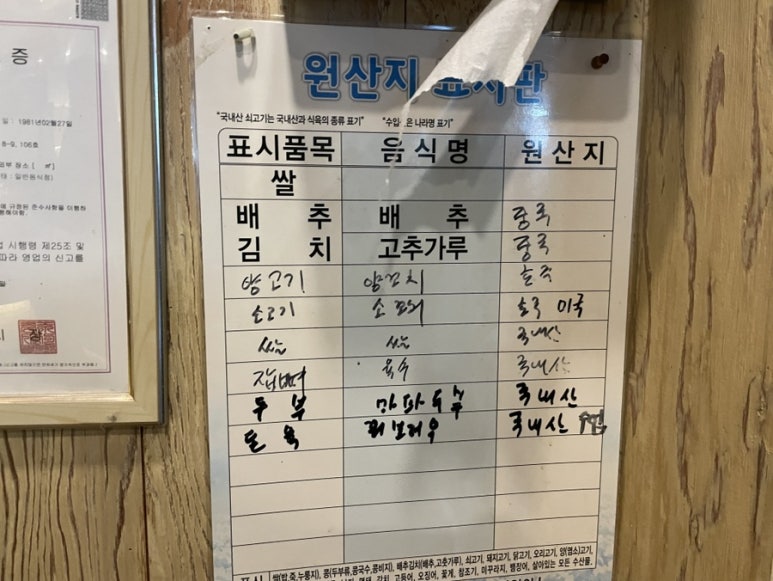 증
일 : 1981년02월27일
8-9, 106호
업부 장소 [ ㎡]
태 : 일반음식점)
에 규정된 준수사항을 이행하
시행령 제25조 및
따라 영업의 신고를
시 장
원산지 표시판
"국내산 쇠고기는 국내산과 식육의 종류 표기" "수입 은 나라명 표기"
표시품목 음식명 원산지
쌀
배추 배추 중국
김치 고추가루 중국
양고기 양꼬치 호주
소고기 소 호주 미국
쌀 쌀 국내산
육수 국내산
두부 마파두부 국내산
돈육 꿔보러우 국내산
표시 쌀(밥,죽,누룽지), 콩(두부류,콩국수,콩비지), 배추김치(배추,고춧가루), 쇠고기, 돼지고기, 닭고기, 오리고기, 양(염소)고기,
명태, 갈치, 고등어, 오징어, 꽃게, 참조기, 미꾸라지, 뱀장어, 살아있는 모든 수산물,